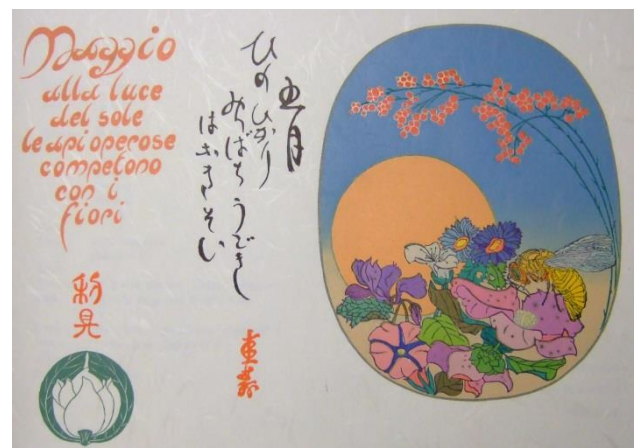 Maggio
alla luce
del sole
le api operose
competono
con i
fiori
五月
ひのひかり
みつばちうごきし
はなきそい